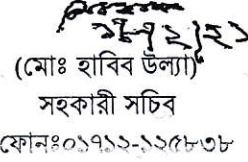 (মোঃ হাবিব উল্যা)
সহকারী সচিব
ফোনঃ০১৭১২-১২৫৮৩৮